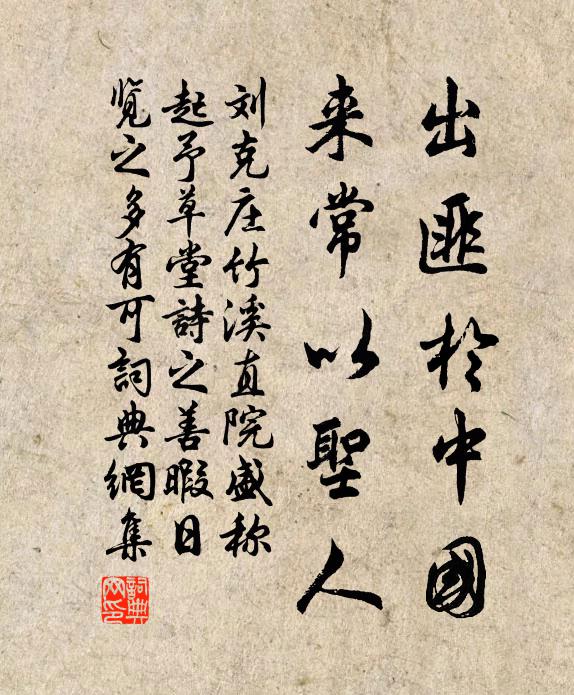 出匪於中國
来常以聖人
刘克庄竹溪直院盛称
起予草堂詩之善暇日
覧之多有可詞典網集
詞典网印